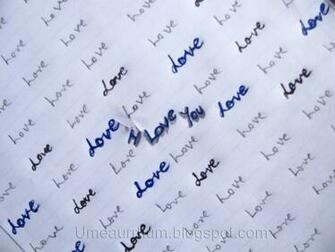 Love Love Love
Love Love Love Love
Love Love Love Love Love
Love Love Love Love Love Love
Love Love Love Love Love Love
Love Love Love Love Love
Love I Love You Love Love
Love Love Love Love Love
Love Love Love Love Love Love
Love Love Love Love Love
Love Love Love Love